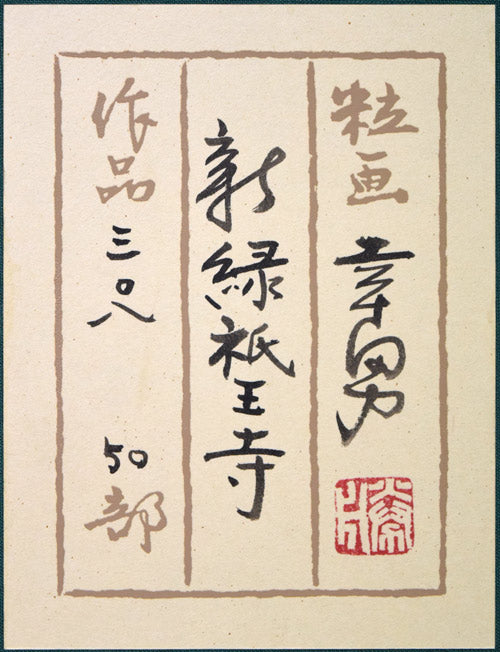 粒画 幸男
新緑祇王寺
作品 三〇八 50部